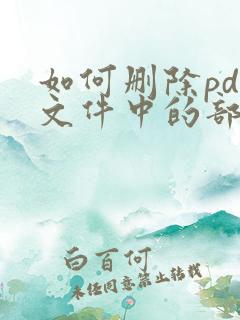 如何删除pd
文件中的部
白百何
未经同意禁止转载